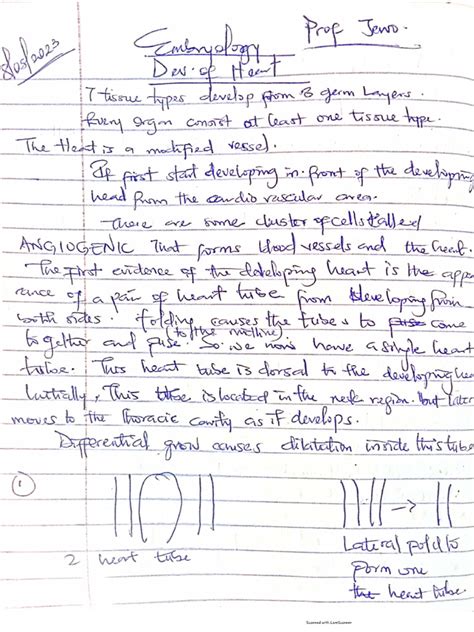 8/05/2023
Prof Jewo.
Embryology
Dev. of Heart
7 tissue types develop from 3 germ Layers.
Every organ consist at least one tissue type.
The Heart is a modified vessel.
It first start developing in front of the developing
head from the cardio vascular area.
There are some cluster of cells called
ANGIOGENIC That forms blood vessels and the heart.
The first evidence of the developing heart is the appe
rance of a pair of heart tube from developing from
both sides. folding causes the tubes to come
(to the midline)
together and fuse. So we now have a single heart
tube. This heart tube is dorsal to the developing hea
Initially, This tube is located in the neck region. But later
moves to the thoracic cavity as it develops.
Differential grow causes dilatation inside this tube
1
2 heart tube
Lateral fold to
form one
the heart tube.
Scanned with CamScanner